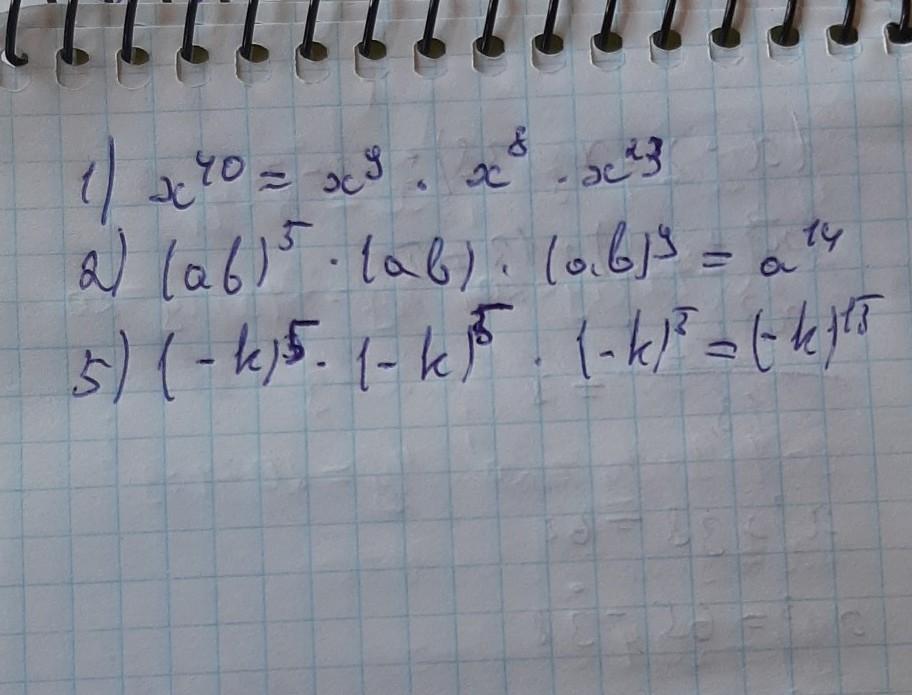 1) x⁴⁰ = x⁹ · x⁸ · x²³
2) (ab)⁵ · (ab) · (ab)⁹ = a¹⁴
5) (-k)⁵ · (-k)⁵ · (-k)⁵ = (-k)¹⁵